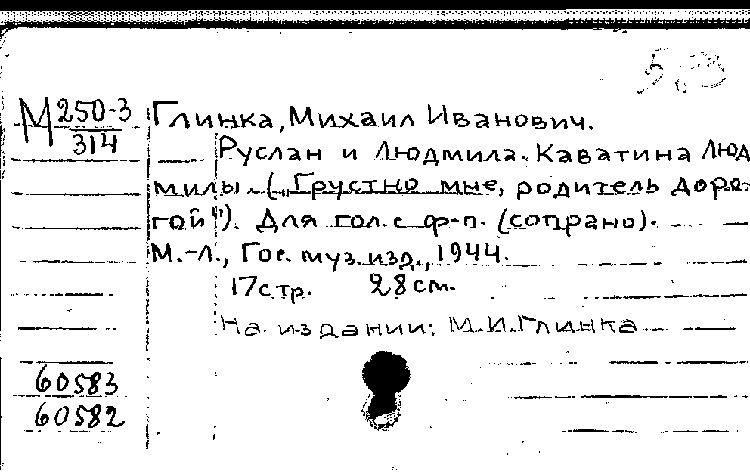 М 250-3
314
Глинка, Михаил Иванович.
Руслан и Людмила. Каватина Люд
милы. („Грустно мне, родитель доро-
гой"). Для гол. с ф-п. (сопрано).
М.-Л., Гос. муз. изд., 1944.
17 стр. 28 см.
На издании: М.И.Глинка
60583
60582